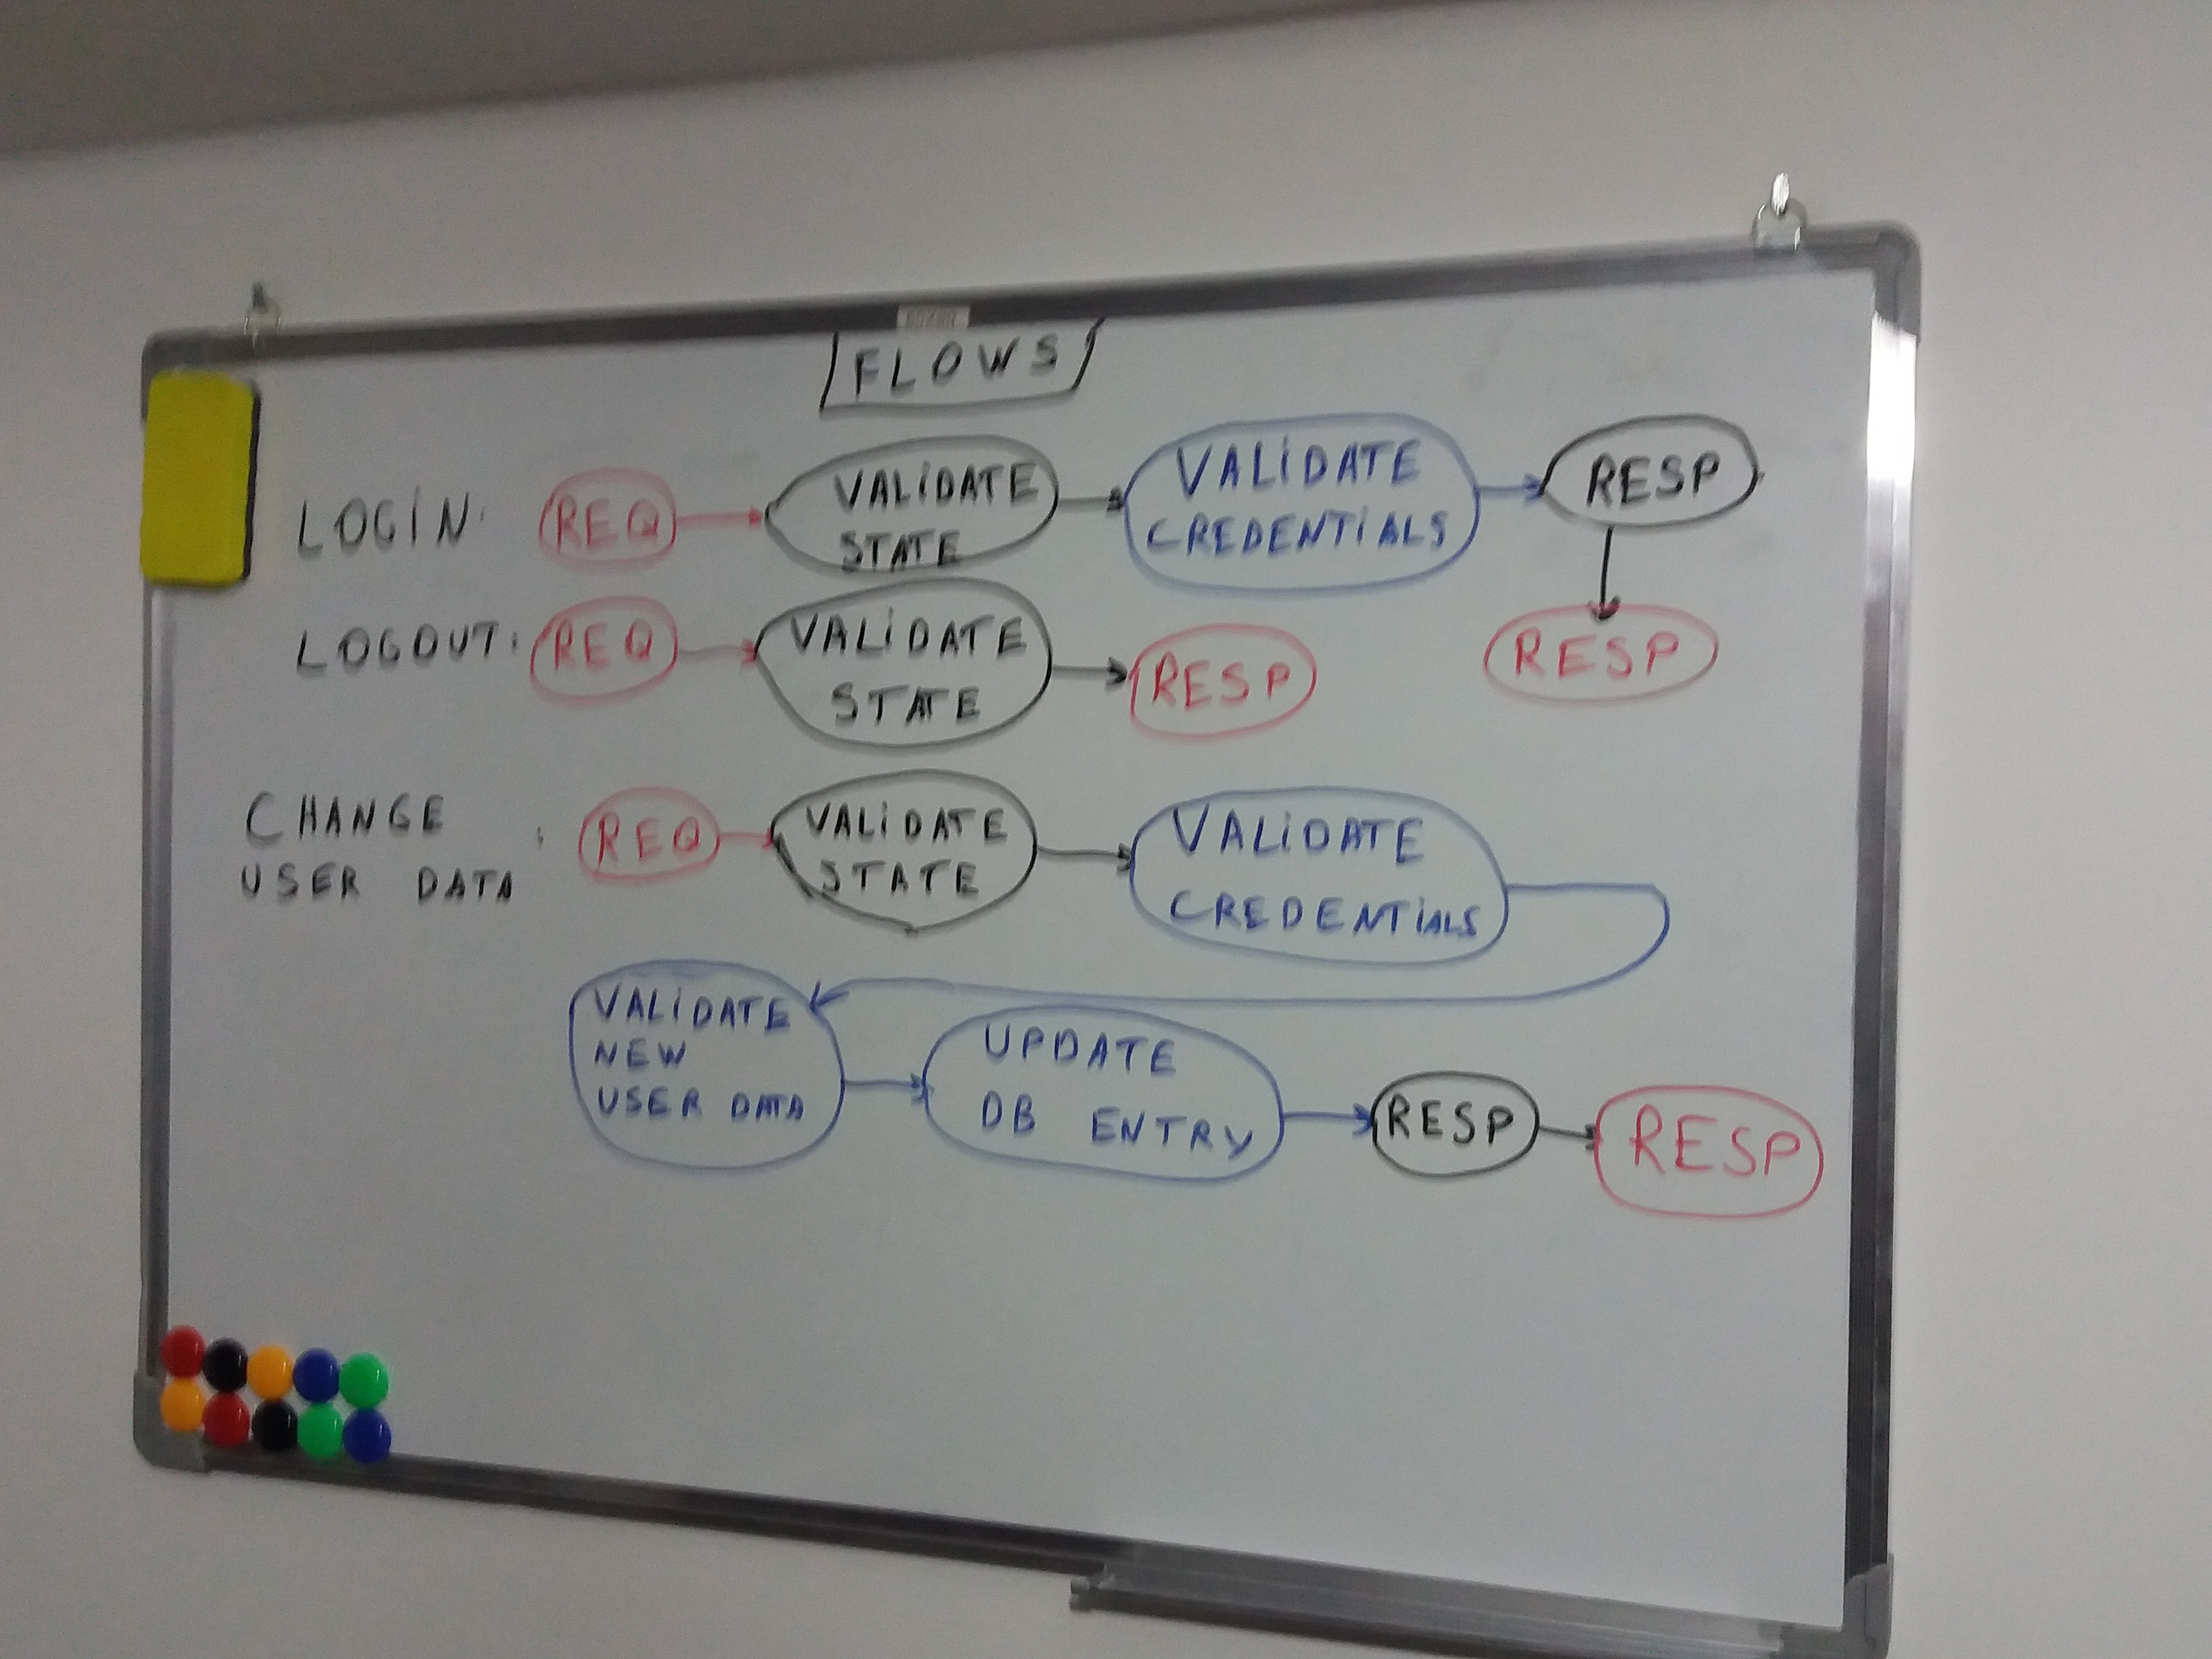 FLOWS
LOGIN: REQ VALIDATE STATE VALIDATE CREDENTIALS RESP
RESP
LOGOUT: REQ VALIDATE STATE RESP
CHANGE USER DATA : REQ VALIDATE STATE VALIDATE CREDENTIALS
VALIDATE NEW USER DATA UPDATE DB ENTRY RESP RESP